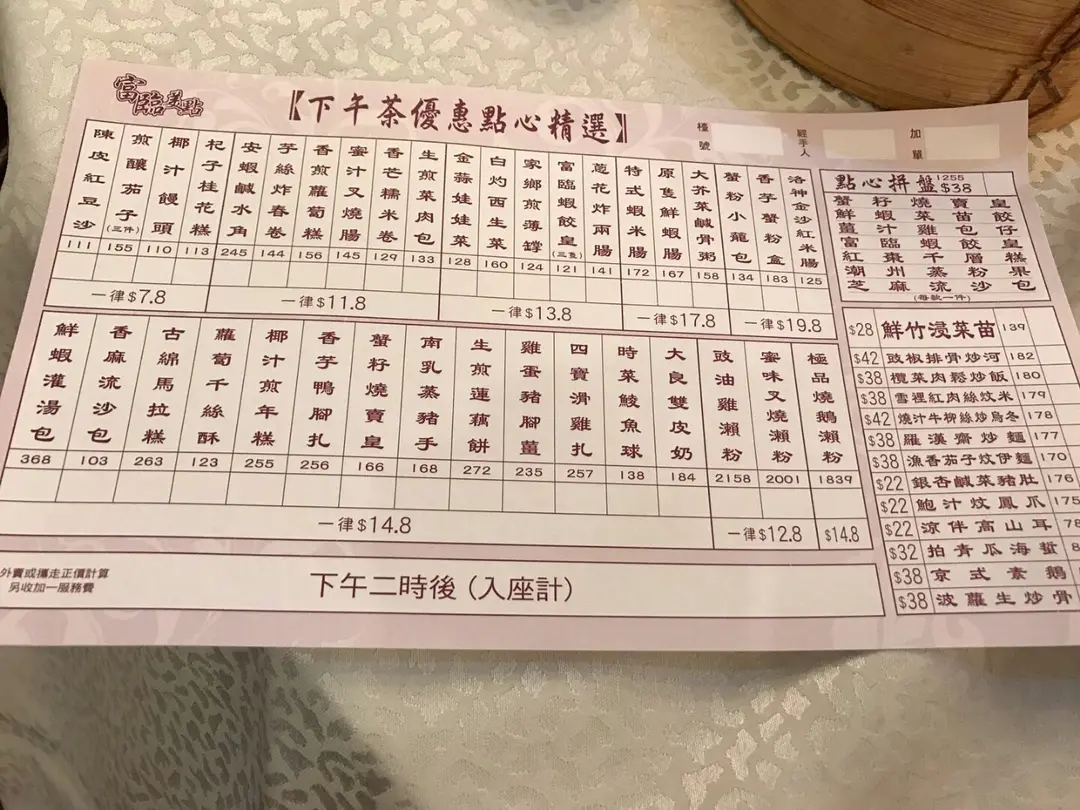 富臨美點
【下午茶優惠點心精選】
檯號
經手人
加單
陳皮紅豆沙 111
煎釀茄子(三件) 155
椰汁饅頭 110
杞子桂花糕 113
安蝦鹹水角 245
芋絲炸春卷 144
香煎蘿蔔糕 156
蜜汁叉燒腸 145
香芒糯米卷 129
生煎菜肉包 133
金蒜娃娃菜 128
白灼西生菜 160
家鄉煎薄罉 124
富臨蝦餃皇(三隻) 121
蔥花炸兩腸 141
特式蝦米腸 172
原隻鮮蝦腸 167
大芥菜鹹骨粥 158
蟹粉小籠包 134
香芋蟹粉盒 183
洛神金沙紅米腸 125
一律$7.8
一律$11.8
一律$13.8
一律$17.8
一律$19.8
鮮蝦灌湯包 368
香麻流沙包 103
古綿馬拉糕 263
蘿蔔千絲酥 123
椰汁煎年糕 255
香芋鴨腳扎 256
蟹籽燒賣皇 166
南乳蒸豬手 168
生煎蓮藕餅 272
雞蛋豬腳薑 235
四寶滑雞扎 257
時菜鯪魚球 138
大良雙皮奶 184
豉油雞瀨粉 2158
蜜味叉燒瀨粉 2001
極品燒鵝瀨粉 1839
一律$14.8
一律$12.8
$14.8
點心拼盤 1255 $38
蟹籽燒賣皇
鮮蝦菜苗餃
薑汁雞包仔
富臨蝦餃皇
紅棗千層糕
潮州蒸粉果
芝麻流沙包
(每款一件)
$28 鮮竹浸菜苗 139
$42 豉椒排骨炒河 182
$38 欖菜肉鬆炒飯 180
$38 雪裡紅肉絲炆米 179
$42 燒汁牛柳絲炒烏冬 178
$38 羅漢齋炒麵 177
$38 漁香茄子炆伊麵 170
$22 銀杏鹹菜豬肚 176
$22 鮑汁炆鳳爪 175
$22 涼伴高山耳 78
$32 拍青瓜海蜇 8
$38 京式素鵝
$38 波蘿生炒骨
外賣或攜走正價計算
另收加一服務費
下午二時後(入座計)